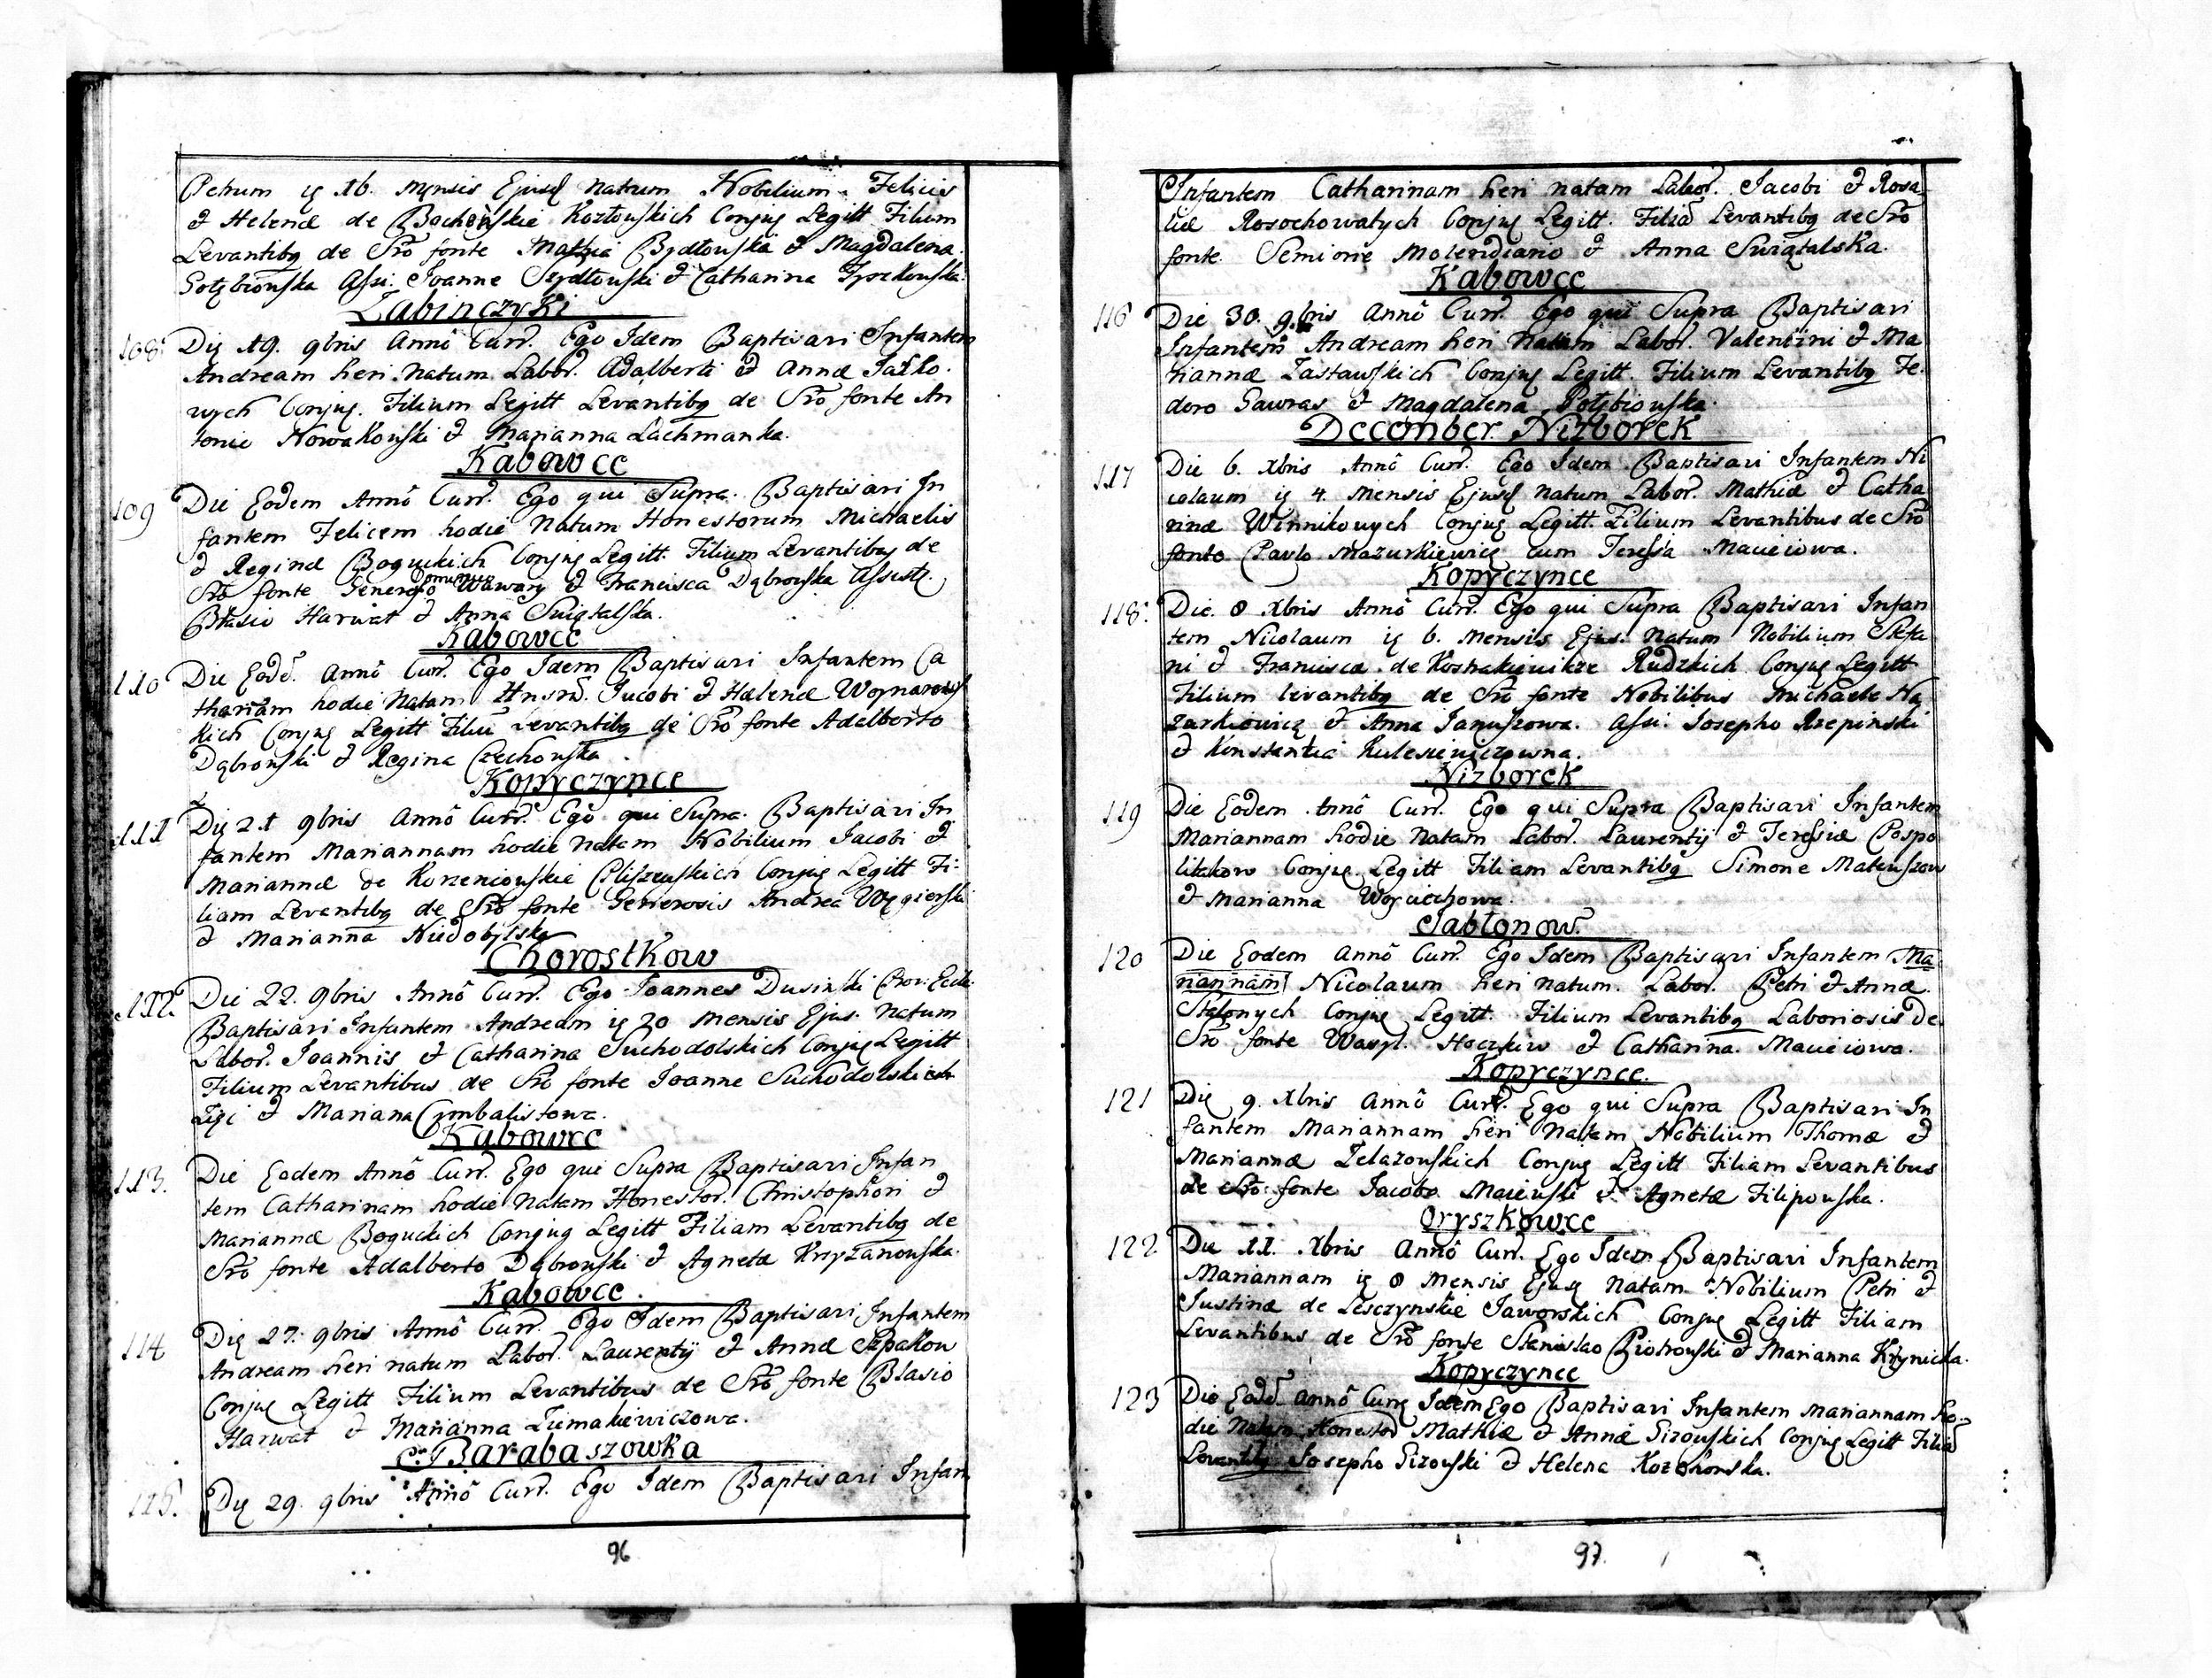 Petrum ię 16. Mensis Ejusd natum Nobilium Felicis
& Helenæ de Bochońskie Kozłowskich Conjug Legitt Filium
Levantibq de Sro fonte Mathia Bydłowska & Magdalena
Gołębiowska Assi. Joanne Szydłowski & Catharina Tyszkowska.
Łabinczyki
108. Die 19. 9bris Annô Curr. Ego Idem Baptisavi Infantem
Andream heri natum Labor. Adalberti & Annæ
wych Conjug. Filium Legitt Levantibq de Sro fonte An
tonio Nowakowski & Marianna Lachmanka.
Kabowce
109 Die Eodem Annô Curr. Ego qui Supra. Baptisavi In
fantem Felicem hodie Natum Honestorum Michaelis
& Reginæ Boguckich Conjug Legitt. Filium Levantibq de
Sro fonte Generoso Wawary & Francisca Dąbrowska
Błasio Harwat & Anna Swiątalska.
Kabowce
110 Die Eodd. Annô Curr. Ego Idem Baptisavi Infantem Ca
tharinam hodie Natam Jacobi & Helenæ Woynarows
kich Conjug Legitt Filiā Levantibq de Sro fonte Adalberto
Dąbrowski & Regina Czechowska
Kopyczynce
111 Die 21 9bris Annô Curr. Ego qui Supra. Baptisavi In
fantem Mariannam hodie Natam Nobilium Jacobi &
Mariannæ de Korzeniowskie Pliszewskich Conjug Legitt Fi-
liam Levantibq de Sro fonte Generosis Andrea Węgierski
& Marianna Niedobylska
Chorostkow
112. Die 22. 9bris Annô Curr. Ego Joannes Dusinski
Baptisavi Infantem Andream ię 20 Mensis Ejus. Natum
Labor. Joannis & Catharina Suchodolskich Conjug Legitt
Filium Levantibus de Sro fonte Joanne Suchodolskich
& Mariana Cymbalistowa.
Kabowce
113. Die Eodem Annô Curr. Ego qui Supra Baptisavi Infan
tem Catharinam hodie Natam Honestor. Christophori &
Mariannæ Boguckich Conjug Legitt Filiam Levantibq de
Sro fonte Adalberto Dąbrowski & Agneta Krzyżanowska.
Kabowce.
114 Die 27. 9bris Annô Curr. Ego Idem Baptisavi Infantem
Andream heri natum Labor. Laurentij & Annæ Szpakow
Conjug Legitt Filium Levantibus de Sro fonte Blasio
Harwat & Marianna Ziemakiewiczowa.
Barabaszowka
115. Die 29. 9bris Annô Curr. Ego Idem Baptisavi Infan
96
Infantem Catharinam heri natam Labor. Jacobi & Rosa
liæ Rosochowatych Conjug Legitt. Filiā Levantibq de Sro
fonte Semione Molendiario & Anna Swiątalska.
Kabowce
116 Die 30. 9bris Annô Curr. Ego qui Supra Baptisavi
Infantem Andream heri Natum Labor. Valentini & Ma
riannæ Zastawskich Conjug Legitt. Filium Levantibq Te-
doro Gawras & Magdalena Gołębiowska.
December Nizborek
117 Die 6. Xbris Annô Curr. Ego Idem Baptisavi Infantem Ni
colaum ię 4. Mensis Ejusd Natum Labor. Mathiæ & Catha
rinæ Winnikowych Conjug Legitt. Filium Levantibus de Sro
fonte Pavlo Mazurkiewicz cum Teressa Macieiowa.
Kopyczynce
118. Die. 8 Xbris Annô Curr. Ego qui Supra Baptisavi Infan
tem Nicolaum ię 6. Mensis Ejus. Natum Nobilium Stefa
ni & Francisca de Rudzkich Conjug Legitt
Filium levantibq de Sro fonte Nobilibus Michaele Na
zarkiewicz & Anna Januszowa. Assi. Josepho Rzepinski
& Konstantia Kulesiewiczowna.
Nizborek
119 Die Eodem Annô Curr. Ego qui Supra Baptisavi Infantem
Mariannam hodie Natam Labor. Laurentij & Teressiæ Pospo
litakow Conjug Legitt Filiam Levantibq Simone Matuszow
& Marianna Woyciechowa.
Jabłonow.
120 Die Eodem Annô Curr. Ego Idem Baptisavi Infantem Ma
riannam Nicolaum heri natum. Labor. Petri & Annæ.
Conjug Legitt. Filium Levantibq Laboriosis de
Sro fonte Wasyl. Hoczkiw & Catharina. Macieiowa.
Kopyczynce.
121 Die 9. Xbris Annô Curr. Ego qui Supra Baptisavi In
fantem Mariannam heri Natam Nobilium Thomæ &
Mariannæ Zelazowskich Conjug Legitt Filiam Levantibus
de Sro fonte Jacobo Maiewski & Agnetæ Filipowska.
Oryszkowce
122 Die 11. Xbris Annô Curr. Ego Idem Baptisavi Infantem
Mariannam ię 8 Mensis Ejusq Natam Nobilium Petri &
Justinæ de Lesczynskie Jaworskich Conjug Legitt Filiam
Levantibus de Sro fonte Stanislao Piotrowski & Marianna Krynicka.
Kopyczynce
123 Die Eodd. Annô Curr Idem Ego Baptisavi Infantem Mariannam ho-
die Natam Honestor Mathiæ & Annæ Gizowskich Conjug Legitt Filiā
Levantibq Josepho Gizowski & Helena Kozchowska.
97.